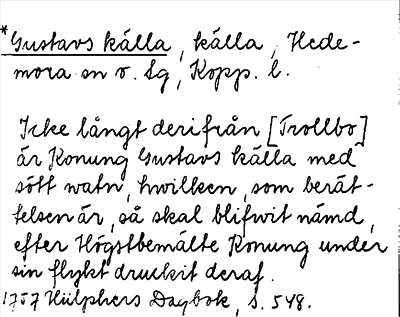 *Gustavs källa, källa, Hede-
mora sn v. Sg, Kopp. l.
Icke långt derifrån [Trollbo]
är Konung Gustavs källa med
sött watn, hwilken, som berät-
telsen är, så skal blifwit nämd,
efter Högstbemälte Konung under
sin flykt druckit deraf.
1757 Hülphers Dagbok, s. 548.